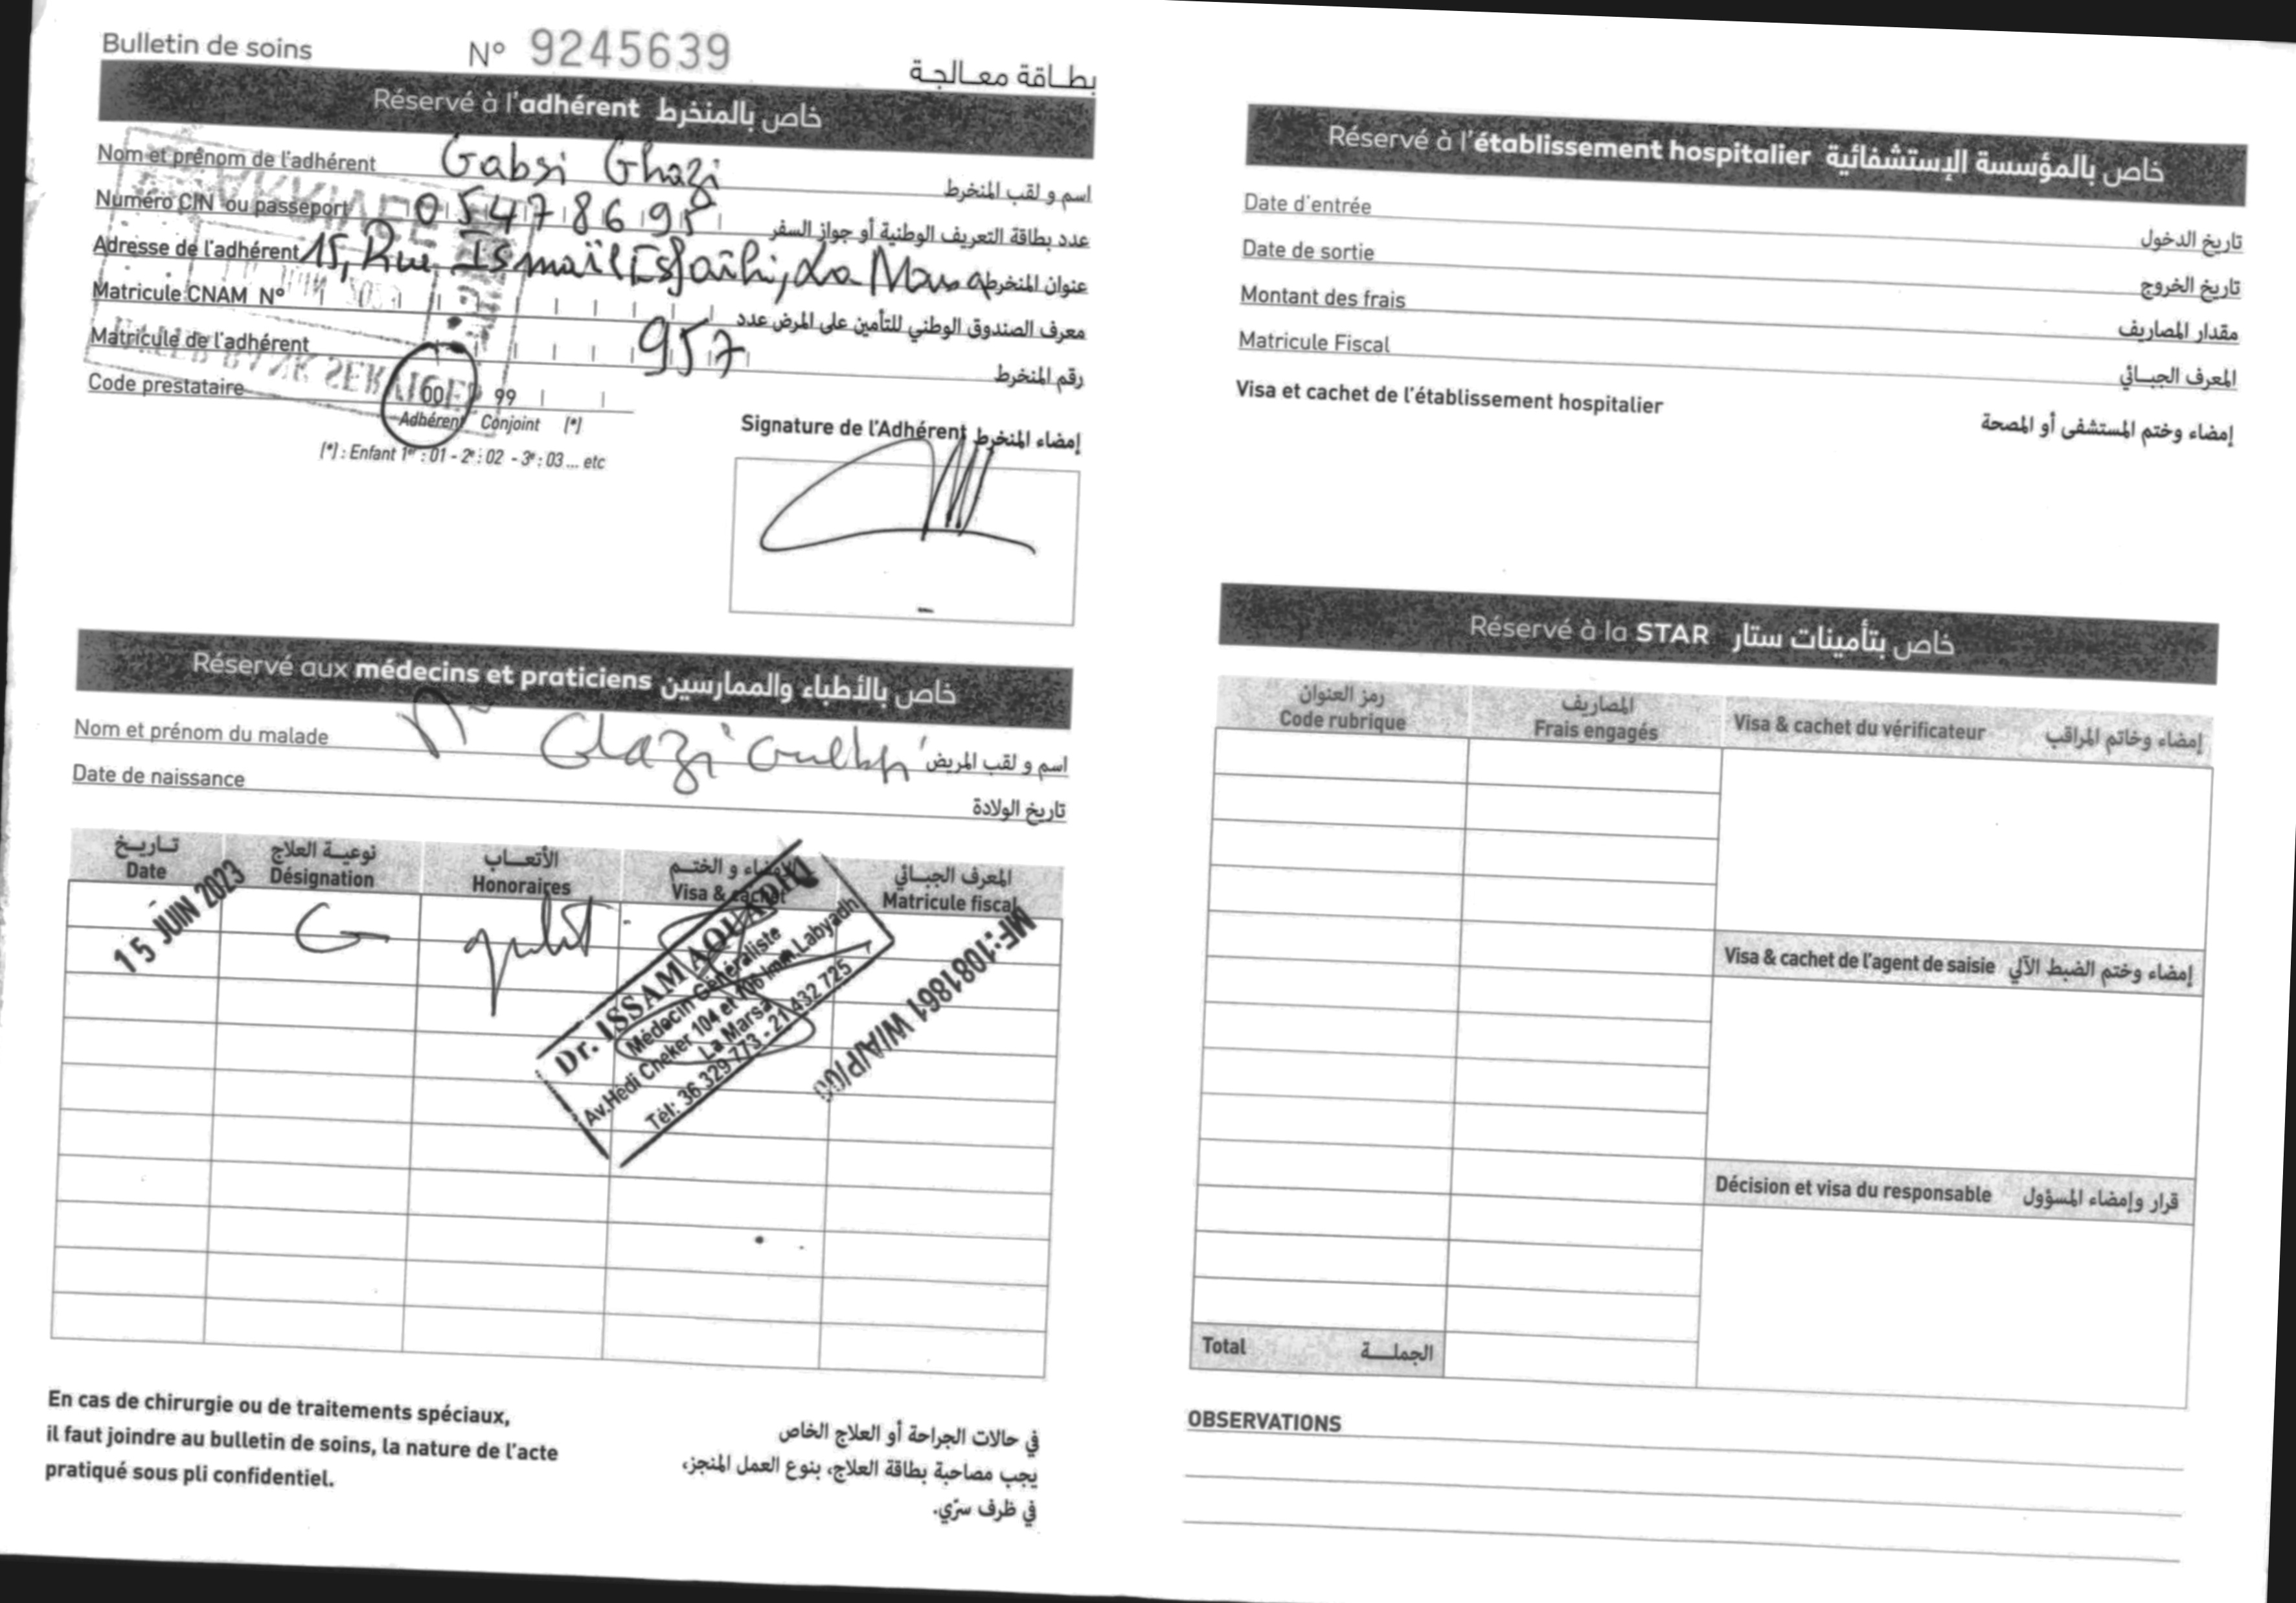 Bulletin de soins N° 9245639 بطاقة معالجة
Réservé à l'adhérent خاص بالمنخرط
Nom et prénom de l'adhérent Gabsi Ghazi اسم و لقب المنخرط
Numéro CIN ou passeport 05478695 عدد بطاقة التعريف الوطنية أو جواز السفر
Adresse de l'adhérent 15, Rue Ismaïl عنوان المنخرط
Matricule CNAM N° معرف الصندوق الوطني للتأمين على المرض عدد
Matricule de l'adhérent 957 رقم المنخرط
Code prestataire 00 99
Adhérent Conjoint (*)
(*) : Enfant 1er : 01 - 2e : 02 - 3e : 03 ... etc
Signature de l'Adhérent إمضاء المنخرط
Réservé aux médecins et praticiens خاص بالأطباء والممارسين
Nom et prénom du malade اسم و لقب المريض
Date de naissance تاريخ الولادة
تاريخ نوعية العلاج الأتعاب الإمضاء و الختم المعرف الجبائي
Date Désignation Honoraires Visa & cachet Matricule fiscal
15 JUIN 2023
Dr. ISSAM
Médecin Généraliste
Av.Hédi Cheker 104 et 106 Imm.Labyadh
La Marsa
Tél: 36 329 773 - 21 432 725
MF:1081861 W/A/P/00
En cas de chirurgie ou de traitements spéciaux,
il faut joindre au bulletin de soins, la nature de l'acte
pratiqué sous pli confidentiel.
في حالات الجراحة أو العلاج الخاص
يجب مصاحبة بطاقة العلاج، بنوع العمل المنجز،
في ظرف سرّي.
Réservé à l'établissement hospitalier خاص بالمؤسسة الإستشفائية
Date d'entrée تاريخ الدخول
Date de sortie تاريخ الخروج
Montant des frais مقدار المصاريف
Matricule Fiscal المعرف الجبائي
Visa et cachet de l'établissement hospitalier إمضاء وختم المستشفى أو المصحة
Réservé à la STAR خاص بتأمينات ستار
رمز العنوان المصاريف
Code rubrique Frais engagés Visa & cachet du vérificateur إمضاء وخاتم المراقب
Visa & cachet de l'agent de saisie إمضاء وختم الضبط الآلي
Décision et visa du responsable قرار وإمضاء المسؤول
Total الجملة
OBSERVATIONS